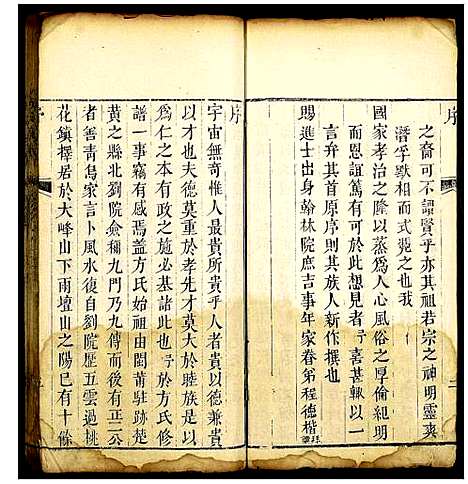 序
之裔可不謂賢乎亦其祖若宗之神明靈爽
潛孚默相而式凭之也我
國家孝治之隆以蒸為人心風俗之厚倫紀明
而恩誼篤有可於此想見者予喜甚輒以一
言弁其首原序則其族人新作撰也
賜進士出身翰林院庶吉事年家眷弟程德楷拜譔
序
宇宙無奇惟人最貴所貴乎人者貴以德兼貴
以才也夫德莫重於孝先才莫大於睦族是以
為仁之本有政之施必基諸此也予於方氏修
譜一事竊有感焉蓋方氏始祖由閩莆駐跡楚
黃之縣北劉院僉稱九門乃九傳而後有正二公
者善青烏家言卜風水復自劉院歷五雲過桃
花鎮擇居於大峰山下雨壇山之陽已有十餘
序